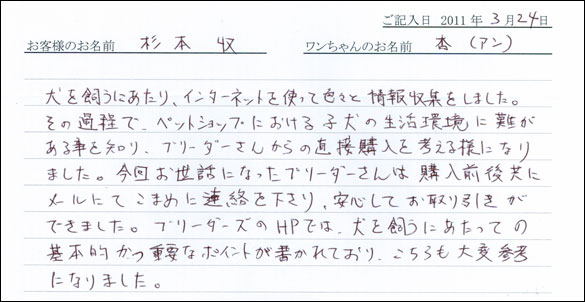 ご記入日 2011年3月24日
お客様のお名前 杉本 収 ワンちゃんのお名前 杏 (アン)
犬を飼うにあたり、インターネットを使って色々と情報収集をしました。
その過程で、ペットショップにおける子犬の生活環境に難が
ある事を知り、ブリーダーさんからの直接購入を考える様になり
ました。今回お世話になったブリーダーさんは購入前後共に
メールにてこまめに連絡を下さり、安心してお取り引きが
できました。ブリーダーズのHPでは、犬を飼うにあたっての
基本的かつ重要なポイントが書かれており、こちらも大変参考
になりました。